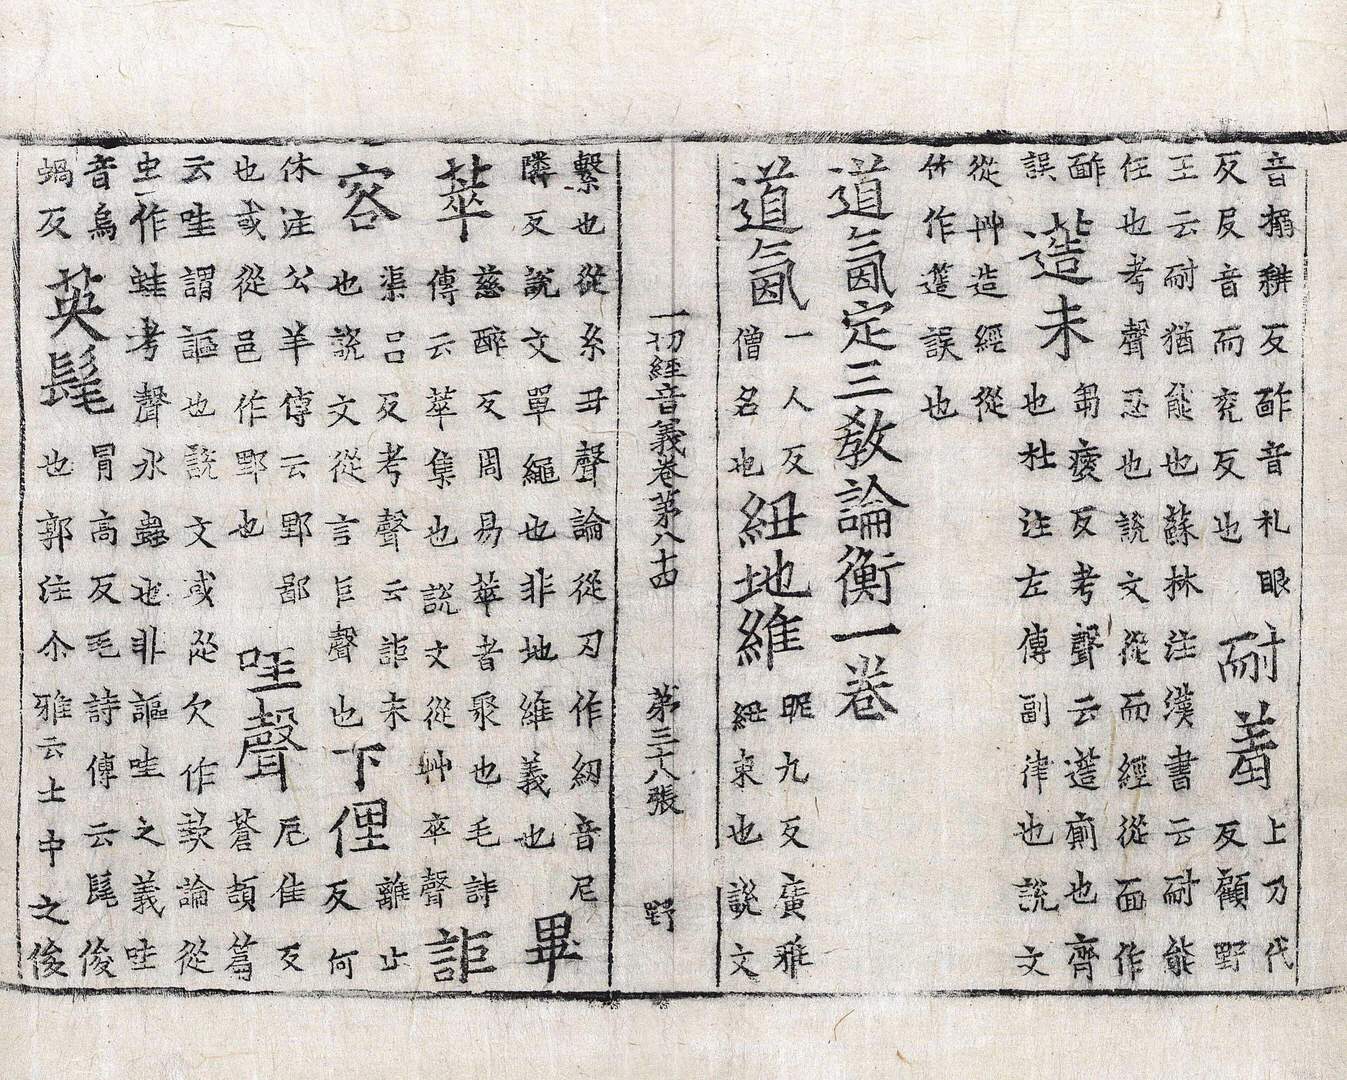 音搦耕反䤃音札眼
反反音而兖反也
耐羞
上乃代反顧野
王云耐猶能也蘇林注漢書云耐能
任也考聲忍也說文從而經從面作
䤃誤
䒃未
芻瘦反考聲云䒃廁也齊
也杜注左傳副律也說文
從艸造經從
竹作簉誤也
道氤定三教論衡一卷
道氤
一人反
僧名也
紐地維
昵九反廣雅
紐束也說文
繫也從糸丑聲論從刃作紉音尼
隣反說文單繩也非地維義也
畢
萃
慈醉反周易萃者聚也毛詩
傳云萃集也說文從艸卒聲
詎
容
渠呂反考聲云詎未
也說文從言巨聲也
下俚
離止反何
休注公羊傳云野鄙
也或從邑作野也
哇聲
厄佳反
蒼頡篇
云哇謂謳也說文或從欠作㰪論從
虫作蛙考聲水蟲也非謳哇之義哇
音烏
蝸反
英髦
冒高反毛詩傳云髦俊
也郭注尒雅云士中之俊
一切經音義卷第八十四
第三十八張
野